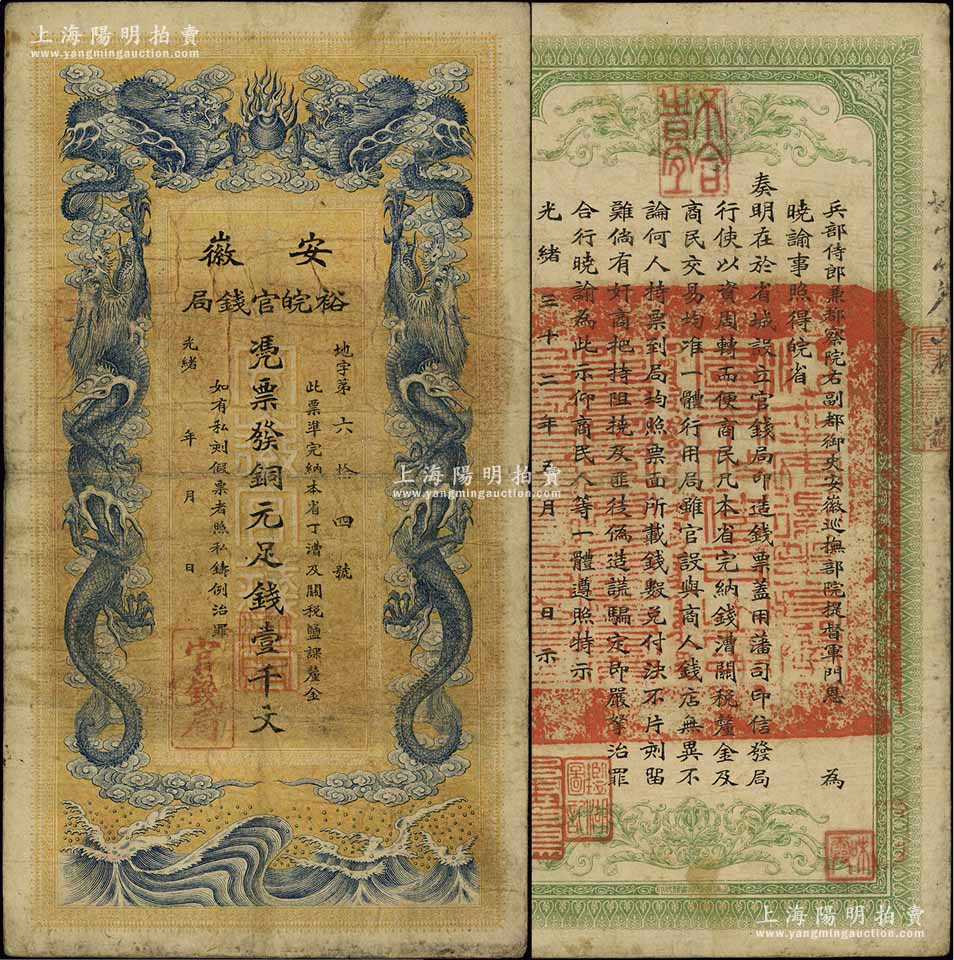 上海陽明拍賣
www.yangmingauction.com
安徽
裕皖官錢局
地字第六拾四號
此票準完納本省丁漕及關税鹽課釐金
憑票發銅元足錢壹千文
如有私刻假票者照私鑄例治罪
光緒 年 月 日
官錢局
兵部侍郎兼都察院右副都御史安徽巡撫部院提督軍門恩 為
曉諭事照得皖省
奏明在於省城設立官錢局印造錢票蓋用藩司印信發局
行使以資周轉而便商民凡本省完納錢漕關税釐金及
商民交易均准一體行用局雖官設與商人錢店無異不
論何人持票到局均照票面所載錢數兌付決不片刻留
難倘有奸商把持阻撓及匪徒偽造誆騙定即嚴拏治罪
合行曉諭為此示仰商民人等一體遵照特示
光緒三十二年五月 日示
上海陽明拍賣
www.yangmingauction.com
上海陽明拍賣
www.yangmingauction.com